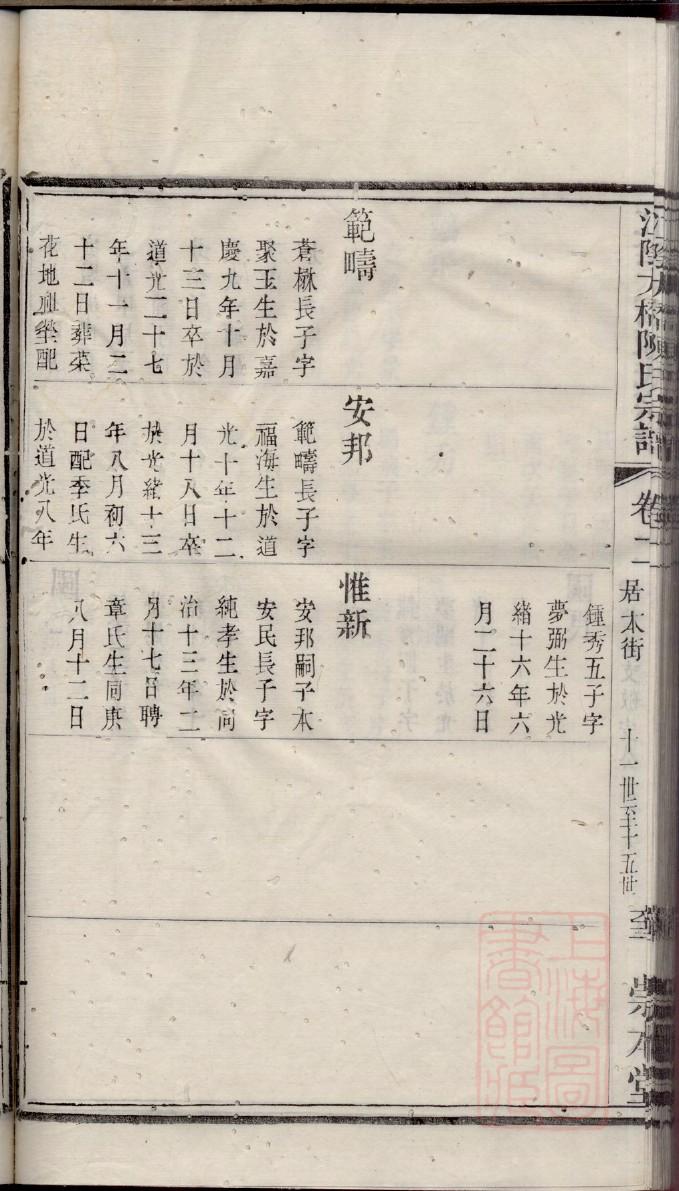 江陰九橋陳氏宗譜
卷二
居木街
十一世至十五世
崇本堂
範疇
蒼楙長子字
聚玉生於嘉
慶九年十月
十三日卒於
道光二十七
年十一月二
十二日葬菜
花地祖塋配
安邦
範疇長子字
福海生於道
光十年十二
月十八日卒
於光緒十三
年八月初六
日配季氏生
於道光八年
鍾秀五子字
夢弼生於光
緒十六年六
月二十六日
惟新
安邦嗣子本
安民長子字
純孝生於同
治十三年二
月十七日聘
章氏生同庚
八月十二日
上海圖書館藏